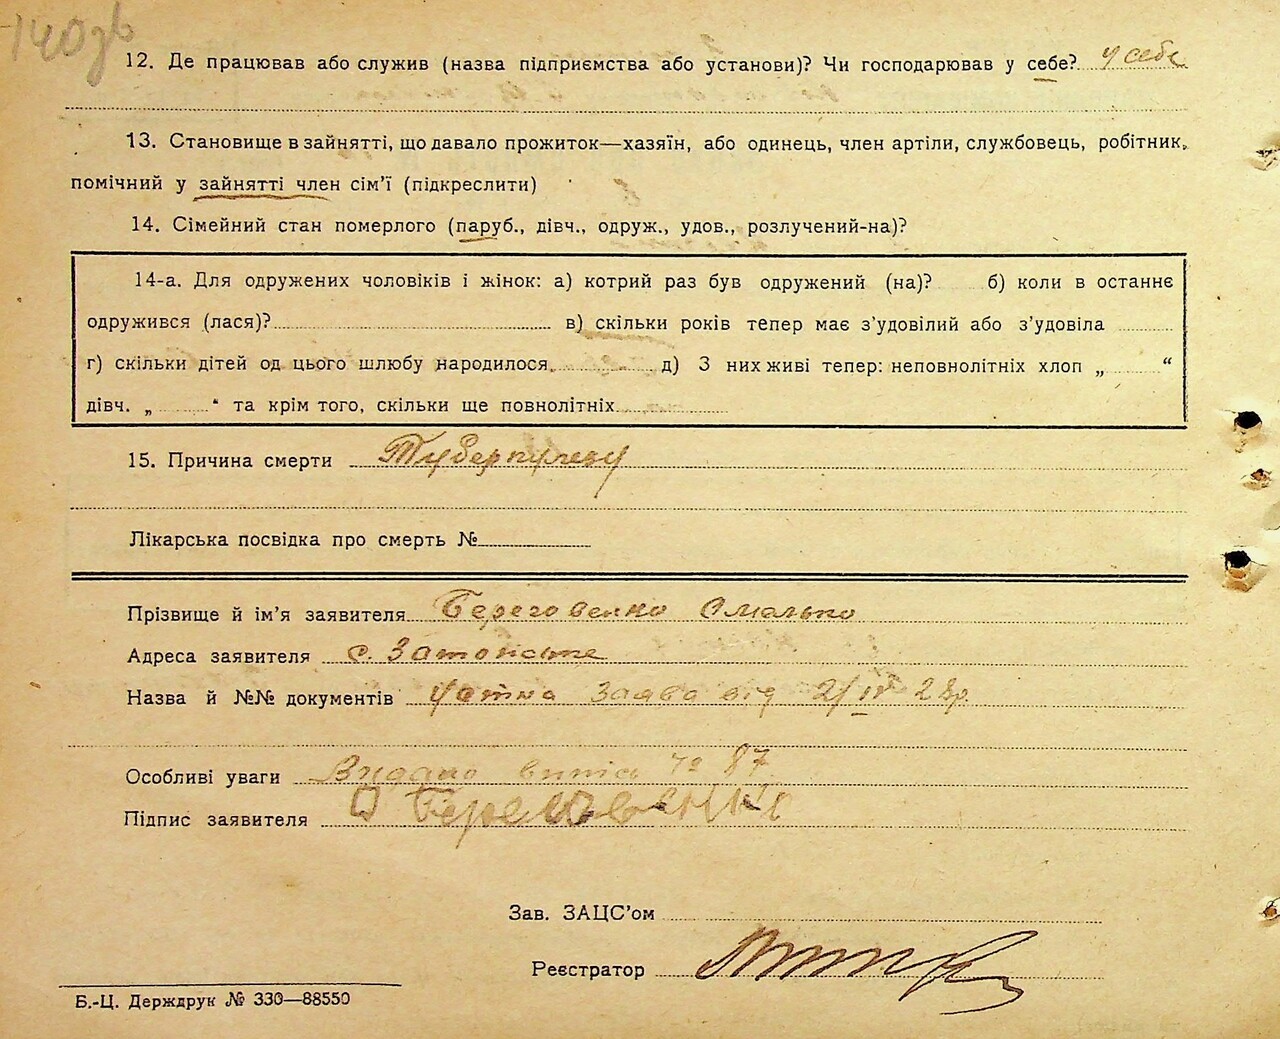 140зв
12. Де працював або служив (назва підприємства або установи)? Чи господарював у себе? у себе
13. Становище в зайнятті, що давало прожиток—хазяїн, або одинець, член артіли, службовець, робітник,
помічний у зайнятті член сім'ї (підкреслити)
14. Сімейний стан померлого (паруб., дівч., одруж., удов., розлучений-на)?
14-а. Для одружених чоловіків і жінок: а) котрий раз був одружений (на)? б) коли в останнє
одружився (лася)? в) скільки років тепер має з'удовілий або з'удовіла
г) скільки дітей од цього шлюбу народилося д) З них живі тепер: неповнолітніх хлоп „ “
дівч. „ “ та крім того, скільки ще повнолітніх
15. Причина смерти
Лікарська посвідка про смерть №
Прізвище й ім'я заявителя Береговенко
Адреса заявителя с. Затонське
Назва й №№ документів Устна Заява від 2/IV 28р.
Особливі уваги Видано випис № 87
Підпис заявителя
Зав. ЗАЦС'ом
Реєстратор
Б.-Ц. Держдрук № 330—88550